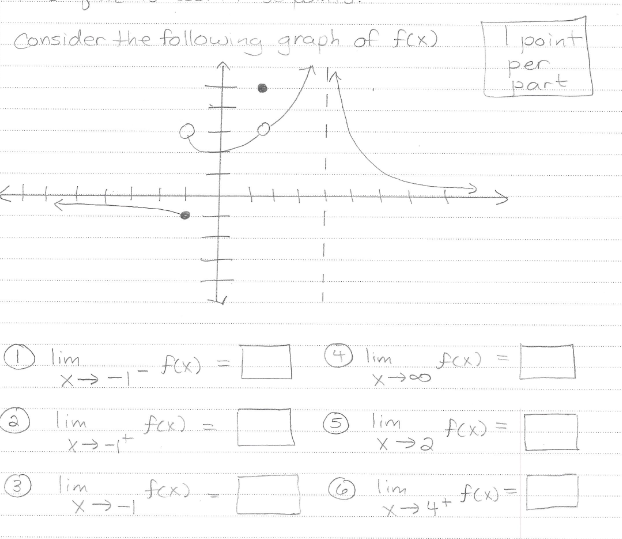 Consider the following graph of f(x)
1 point
per
part
① lim x→-1⁻ f(x) =
② lim x→-1⁺ f(x) =
③ lim x→-1 f(x) =
④ lim x→∞ f(x) =
⑤ lim x→2 f(x) =
⑥ lim x→4⁺ f(x) =